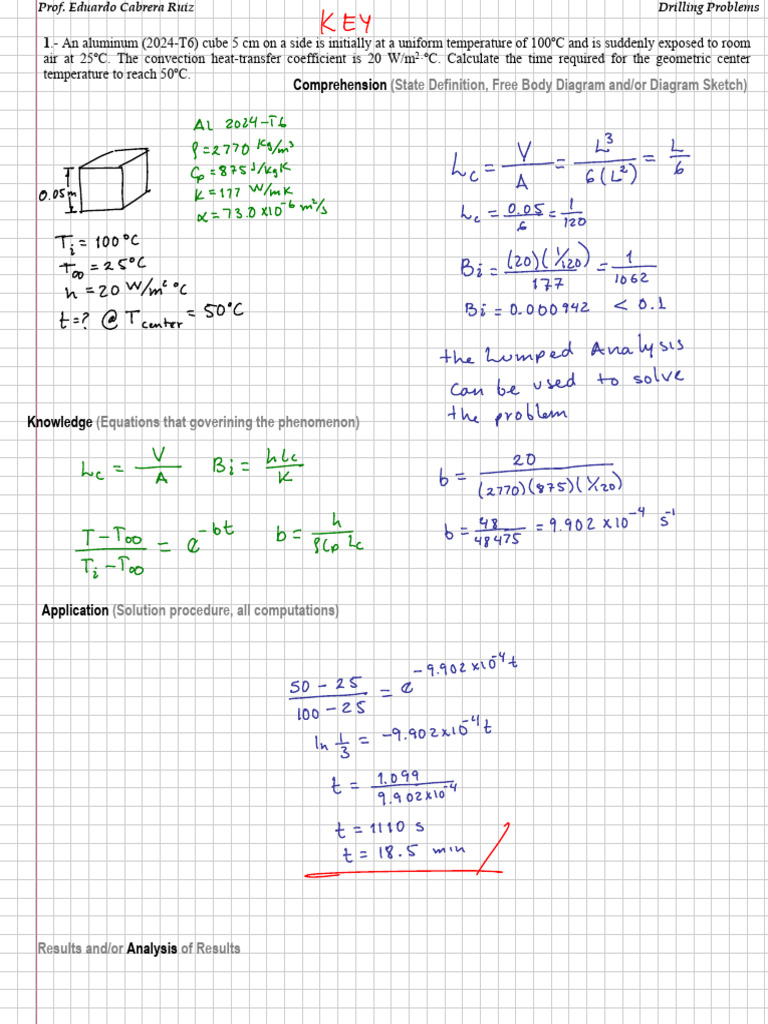 Prof. Eduardo Cabrera Ruiz Drilling Problems
KEY
1.- An aluminum (2024-T6) cube 5 cm on a side is initially at a uniform temperature of 100ºC and is suddenly exposed to room
air at 25ºC. The convection heat-transfer coefficient is 20 W/m²·ºC. Calculate the time required for the geometric center
temperature to reach 50ºC.
Comprehension (State Definition, Free Body Diagram and/or Diagram Sketch)
Al 2024-T6
ρ=2770 kg/m³
Cp=875 J/kgK
K=177 W/mK
α=73.0x10⁻⁶ m²/s
0.05m
Ti=100°C
T∞=25°C
h=20 W/m² °C
t=? @ Tcenter=50°C
Lc = V/A = L³/6(L²) = L/6
Lc = 0.05/6 = 1/120
Bi = (20)(1/120)/177 = 1/1062
Bi=0.000942 < 0.1
the Lumped Analysis
can be used to solve
the problem
Knowledge (Equations that goverining the phenomenon)
Lc = V/A Bi = hLc/K
T-T∞/Ti-T∞ = e^-bt b = h/ρCp Lc
b = 20/(2770)(875)(1/120)
b = 48/48475 = 9.902x10⁻⁴ s⁻¹
Application (Solution procedure, all computations)
50-25/100-25 = e^-9.902x10⁻⁴t
ln 1/3 = -9.902x10⁻⁴t
t = 1.099/9.902x10⁻⁴
t=1110 s
t=18.5 min
Results and/or Analysis of Results